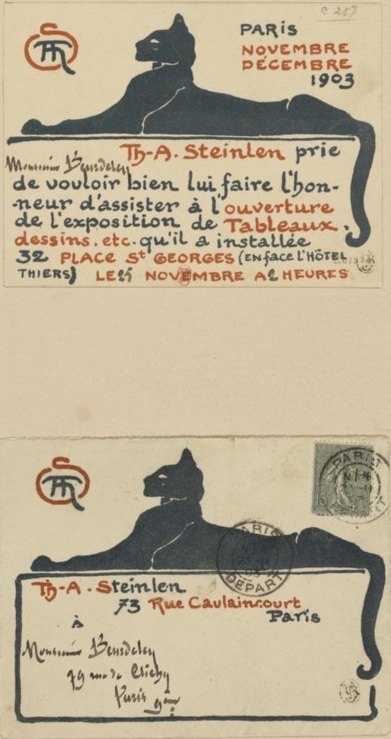 C 257
PARIS
NOVEMBRE
DÉCEMBRE
1903
Th-A. Steinlen prie
Monsieur Beurdeley
de vouloir bien lui faire l'hon-
-neur d'assister à l'ouverture
de l'exposition de Tableaux,
dessins, etc. qu'il a installée
32 PLACE St GEORGES (EN face l'HÔTEL
THIERS) LE 25 NOVEMBRE A 2 HEURES
PARIS
PARIS
DEPART
Th-A. Steinlen
73 Rue Caulaincourt
à Paris
Monsieur Beurdeley
79 rue de Clichy
Paris 9eme